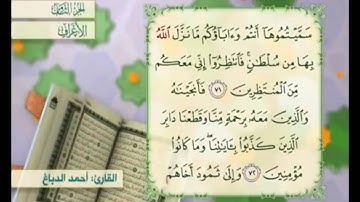 الجزء الثامن
الأعراف
سَمَّيْتُمُوهَآ أَنتُمْ وَءَابَآؤُكُم مَّا نَزَّلَ ٱللَّهُ
بِهَا مِن سُلْطَٰنٍ ۚ فَٱنتَظِرُوٓا۟ إِنِّى مَعَكُم
مِّنَ ٱلْمُنتَظِرِينَ ٧١ فَأَنجَيْنَٰهُ
وَٱلَّذِينَ مَعَهُۥ بِرَحْمَةٍ مِّنَّا وَقَطَعْنَا دَابِرَ
ٱلَّذِينَ كَذَّبُوا۟ بِـَٔايَٰتِنَا ۖ وَمَا كَانُوا۟
مُؤْمِنِينَ ٧٢ وَإِلَىٰ ثَمُودَ أَخَاهُمْ
القارئ: أحمد الدباغ